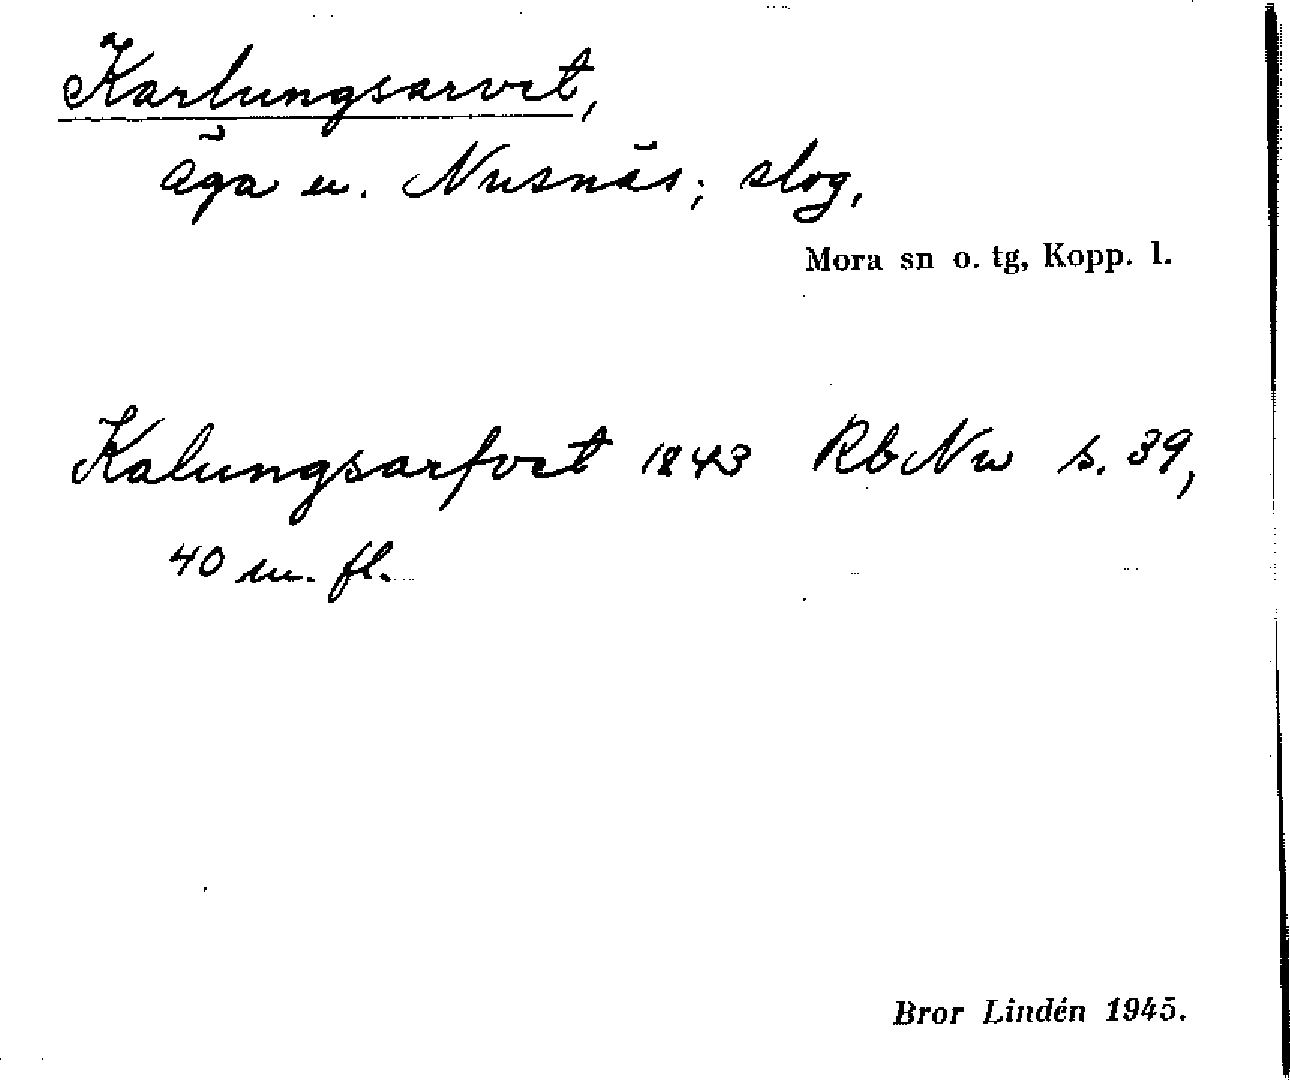 Karlungsarvet,
äga u. Nusnäs; slog,
Mora sn o. tg, Kopp. l.
Kalungsarfvet 1843 RbNu s. 39,
40 m. fl.
Bror Lindén 1945.